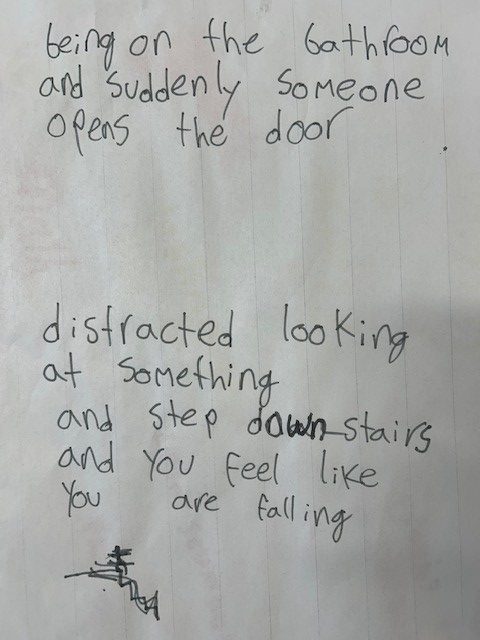 being on the bathroom
and suddenly someone
opens the door
distracted looking
at something
and step down stairs
and you feel like
you are falling